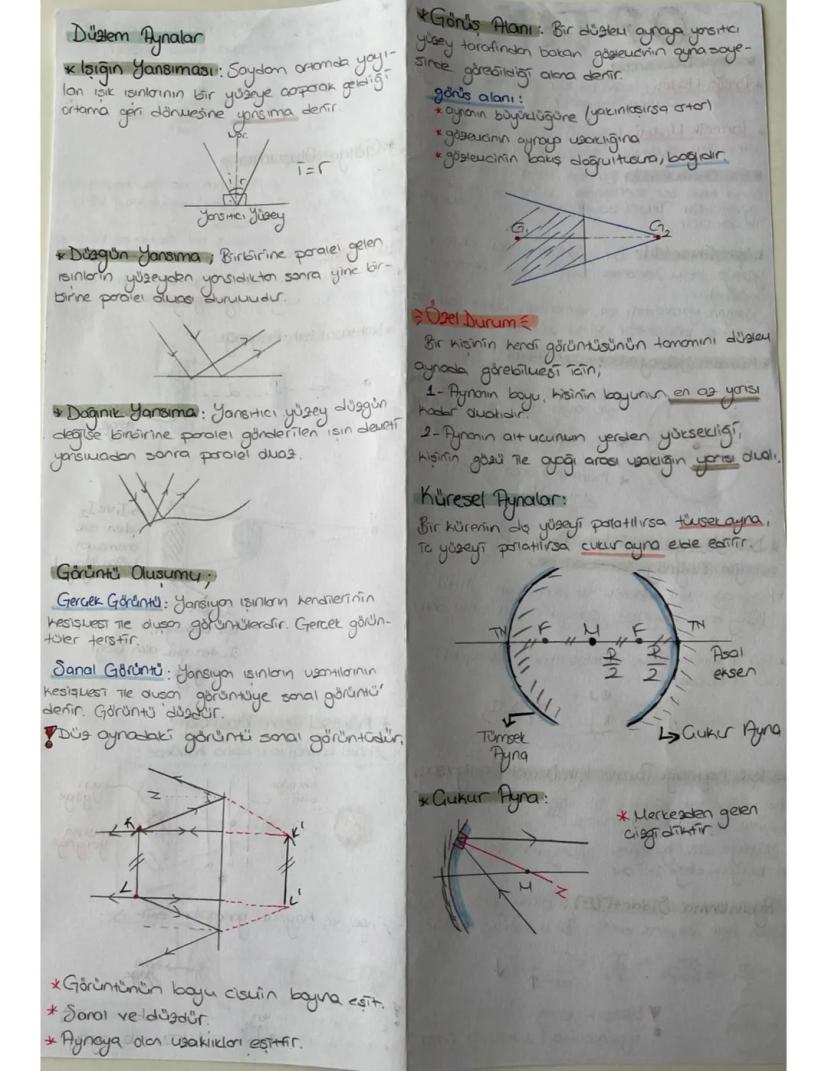 Düzlem Aynalar
* Işığın Yansıması: Saydam ortamda yayı-
lan ışık ışınlarının bir yüzeye çarparak geldiği
ortama geri dönmesine yansıma denir.
i r
i=r
Yansıtıcı Yüzey
* Düzgün Yansıma; Birbirine paralel gelen
ışınların yüzeyden yansıdıktan sonra yine bir-
birine paralel olması durumudur.
* Dağınık Yansıma: Yansıtıcı yüzey düzgün
değilse birbirine paralel gönderilen ışın demeti
yansımadan sonra paralel olmaz.
Görüntü Oluşumu;
Gerçek Görüntü: Yansıyan ışınların kendilerinin
kesişmesi ile oluşan görüntülerdir. Gerçek görün-
tüler terstir.
Sanal Görüntü: Yansıyan ışınların uzantılarının
kesişmesi ile oluşan görüntüye sanal görüntü
denir. Görüntü düzdür.
! Düz aynadaki görüntü sanal görüntüdür.
N
K K'
L L'
* Görüntünün boyu cismin boyuna eşit.
* Sanal ve düzdür.
* Aynaya olan uzaklıkları eşittir.
* Görüş Alanı: Bir düzlem aynaya yansıtıcı
yüzey tarafından bakan gözlemcinin ayna saye-
sinde görebildiği alana denir.
görüş alanı:
* aynanın büyüklüğüne (yakınlaşırsa artar)
* gözlemcinin aynaya uzaklığına
* gözlemcinin bakış doğrultusuna, bağlıdır.
G₁ G₂
Özel Durum
Bir kişinin kendi görüntüsünün tamamını düzlem
aynada görebilmesi için;
1- Aynanın boyu, kişinin boyunun en az yarısı
kadar olmalıdır.
2- Aynanın alt ucunun yerden yüksekliği,
kişinin gözü ile ayağı arası uzaklığın yarısı olmalı.
Küresel Aynalar:
Bir kürenin dış yüzeyi parlatılırsa tümsek ayna,
iç yüzeyi parlatılırsa çukur ayna elde edilir.
TN F M F TN
R/2 R/2
Asal
eksen
Tümsek
Ayna
Çukur Ayna
* Çukur Ayna:
* Merkezden gelen
çizgi diktir
M
N